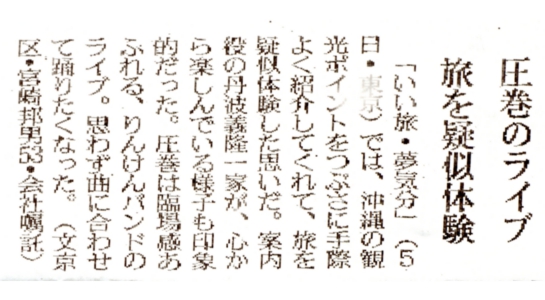 圧巻のライブ
旅を疑似体験
「いい旅・夢気分」（5
日・東京）では、沖縄の観
光ポイントをつぶさに手際
よく紹介してくれて、旅を
疑似体験した思いだ。案内
役の丹波義隆一家が、心か
ら楽しんでいる様子も印象
的だった。圧巻は臨場感あ
ふれる、りんけんバンドの
ライブ。思わず曲に合わせ
て踊りたくなった。（文京
区・宮崎邦男53・会社嘱託）